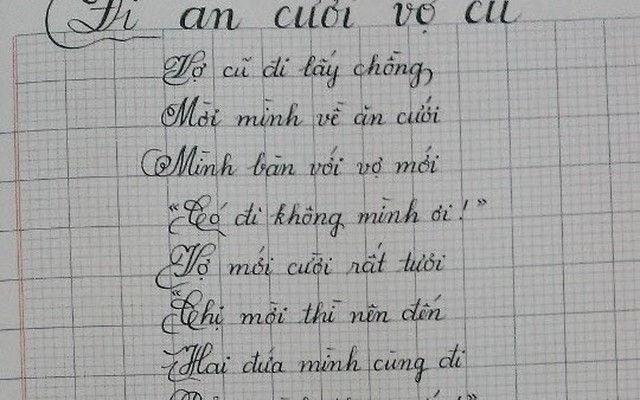 Đi ăn cưới vợ cũ
Vợ cũ đi lấy chồng,
Mời mình về ăn cưới
Mình bàn với vợ mới
“Có đi không mình ơi!”
Vợ mới cười rất tươi
“Chị mời thì nên đến
Hai đứa mình cùng đi